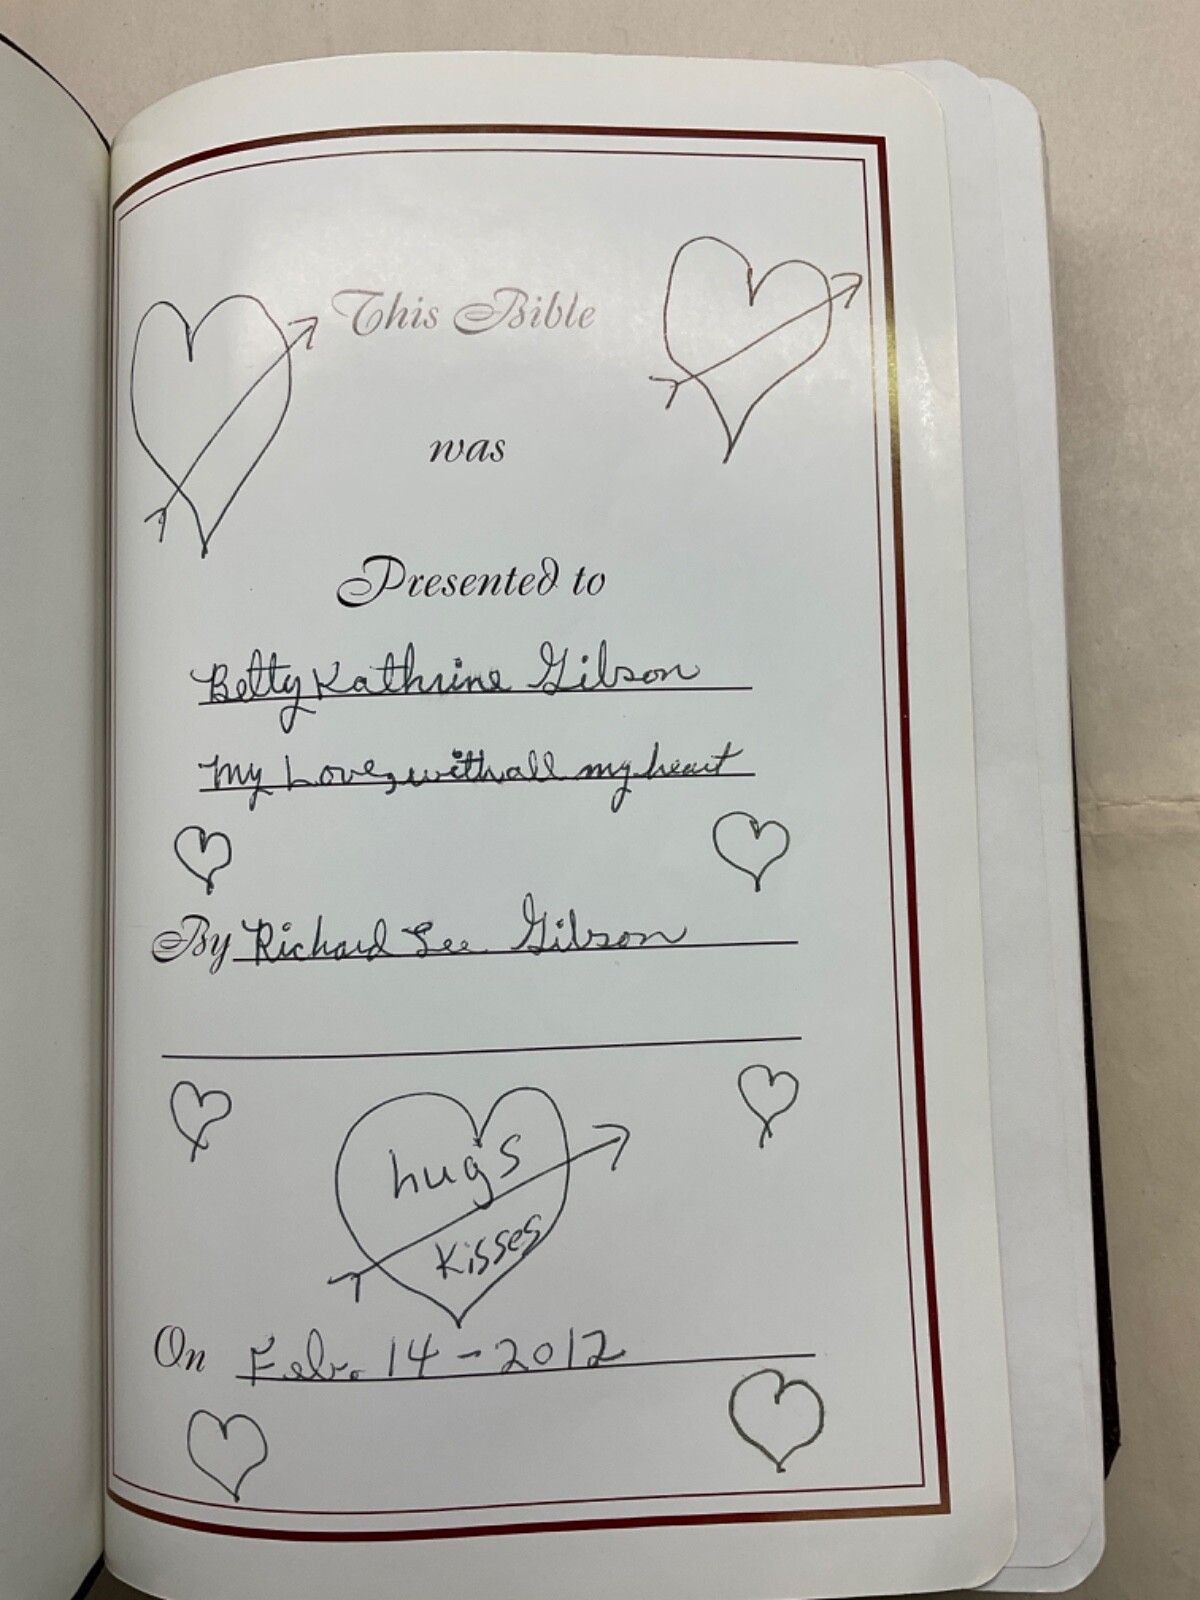 This Bible
was
Presented to
Betty Kathrine Gibson
My Love, with all my heart
By Richard Lee Gibson
hugs
Kisses
On Feb. 14-2012